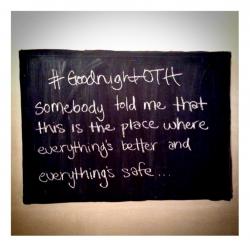 #GoodnightOTH
somebody told me that
this is the place where
everything's better and
everything's safe...